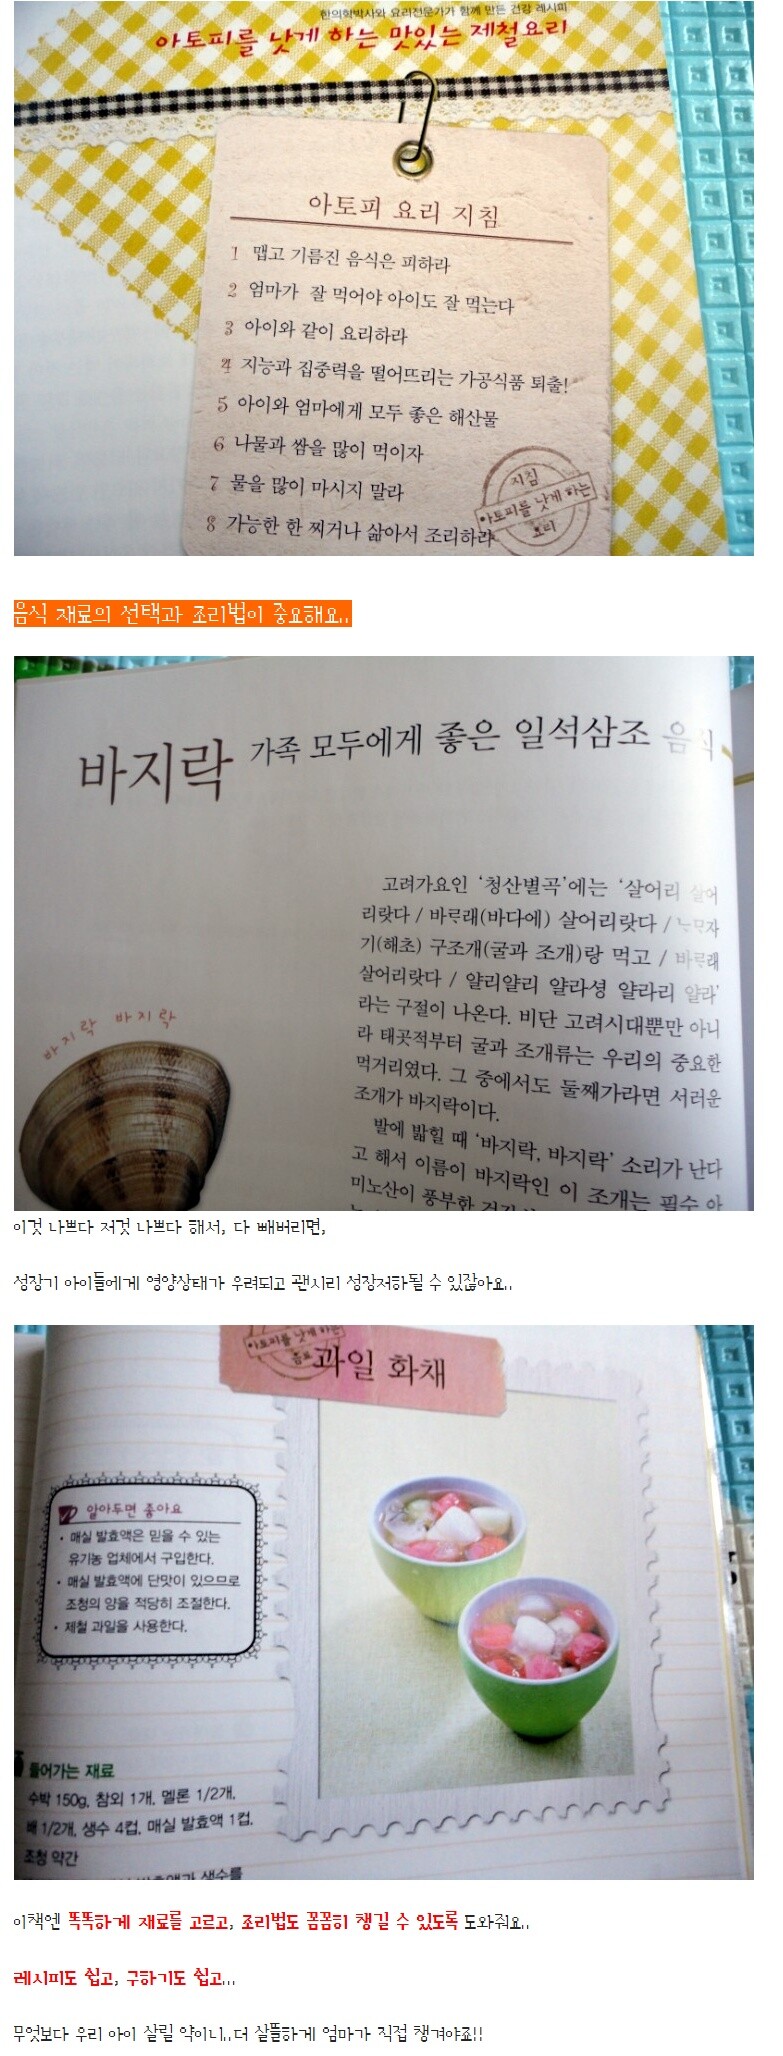 한의학박사와 요리전문가가 함께 만든 건강 레시피
아토피를 낫게 하는 맛있는 제철요리
아토피 요리 지침
1 맵고 기름진 음식은 피하라
2 엄마가 잘 먹어야 아이도 잘 먹는다
3 아이와 같이 요리하라
4 지능과 집중력을 떨어뜨리는 가공식품 퇴출!
5 아이와 엄마에게 모두 좋은 해산물
6 나물과 쌈을 많이 먹이자
7 물을 많이 마시지 말라
8 가능한 한 찌거나 삶아서 조리하라
지침
아토피를 낫게 하는
요리
음식 재료의 선택과 조리법이 중요해요..
바지락 가족 모두에게 좋은 일석삼조 음식
고려가요인 ‘청산별곡’에는 ‘살어리 살어
리랏다 / 바ᄅᆞ래(바다에) 살어리랏다 /
기(해초) 구조개(굴과 조개)랑 먹고 / 바ᄅᆞ래
살어리랏다 / 얄리얄리 얄라셩 얄라리 얄라’
라는 구절이 나온다. 비단 고려시대뿐만 아니
라 태곳적부터 굴과 조개류는 우리의 중요한
먹거리였다. 그 중에서도 둘째가라면 서러운
조개가 바지락이다.
발에 밟힐 때 ‘바지락, 바지락’ 소리가 난다
고 해서 이름이 바지락인 이 조개는 필수 아
미노산이 풍부한
바지락 바지락
이것 나쁘다 저것 나쁘다 해서, 다 빼버리면,
성장기 아이들에게 영양상태가 우려되고 괜시리 성장저하될 수 있잖아요..
아토피를 낫게 하는
과일 화채
알아두면 좋아요
• 매실 발효액은 믿을 수 있는
유기농 업체에서 구입한다.
• 매실 발효액에 단맛이 있으므로
조청의 양을 적당히 조절한다.
• 제철 과일을 사용한다.
들어가는 재료
수박 150g, 참외 1개, 멜론 1/2개,
배 1/2개, 생수 4컵, 매실 발효액 1컵,
조청 약간
이책엔 똑똑하게 재료를 고르고, 조리법도 꼼꼼히 챙길 수 있도록 도와줘요..
레시피도 쉽고, 구하기도 쉽고...
무엇보다 우리 아이 살릴 약이니..더 살뜰하게 엄마가 직접 챙겨야죠!!